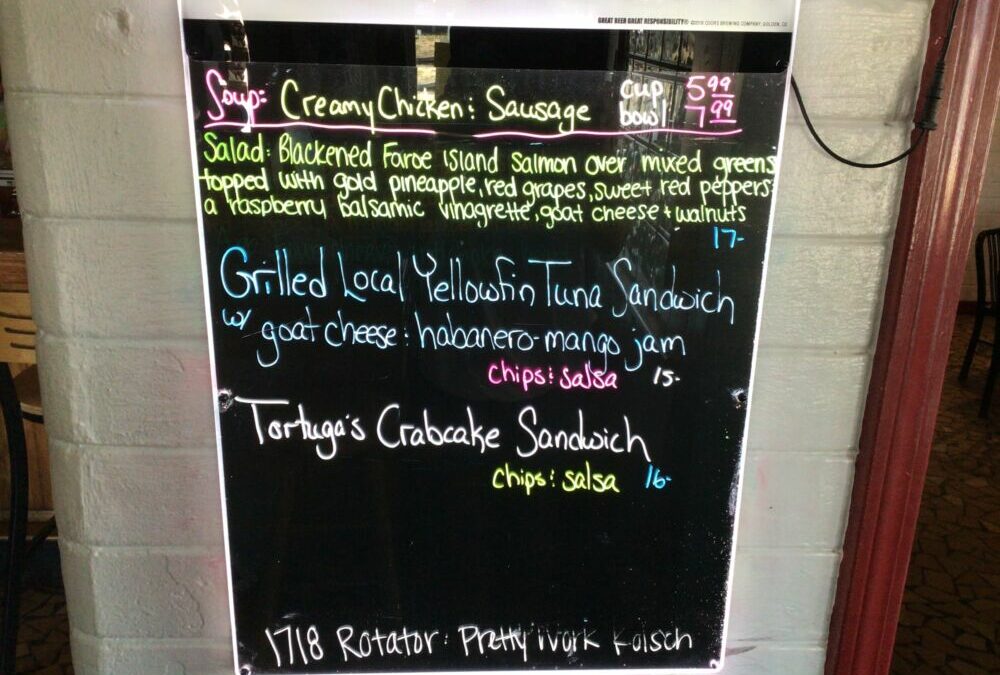 GREAT BEER GREAT RESPONSIBILITY® ©2018 COORS BREWING COMPANY, GOLDEN, CO
Soup: Creamy Chicken & Sausage cup 5.99
bowl 7.99
Salad: Blackened Faroe Island Salmon over mixed greens
topped with gold pineapple, red grapes, sweet red peppers &
a raspberry balsamic vinagrette, goat cheese + walnuts
17-
Grilled Local Yellowfin Tuna Sandwich
w/ goat cheese & habanero-mango jam
chips & salsa 15-
Tortuga's Crabcake Sandwich
chips & salsa 16-
1718 Rotator: Pretty Work Kolsch